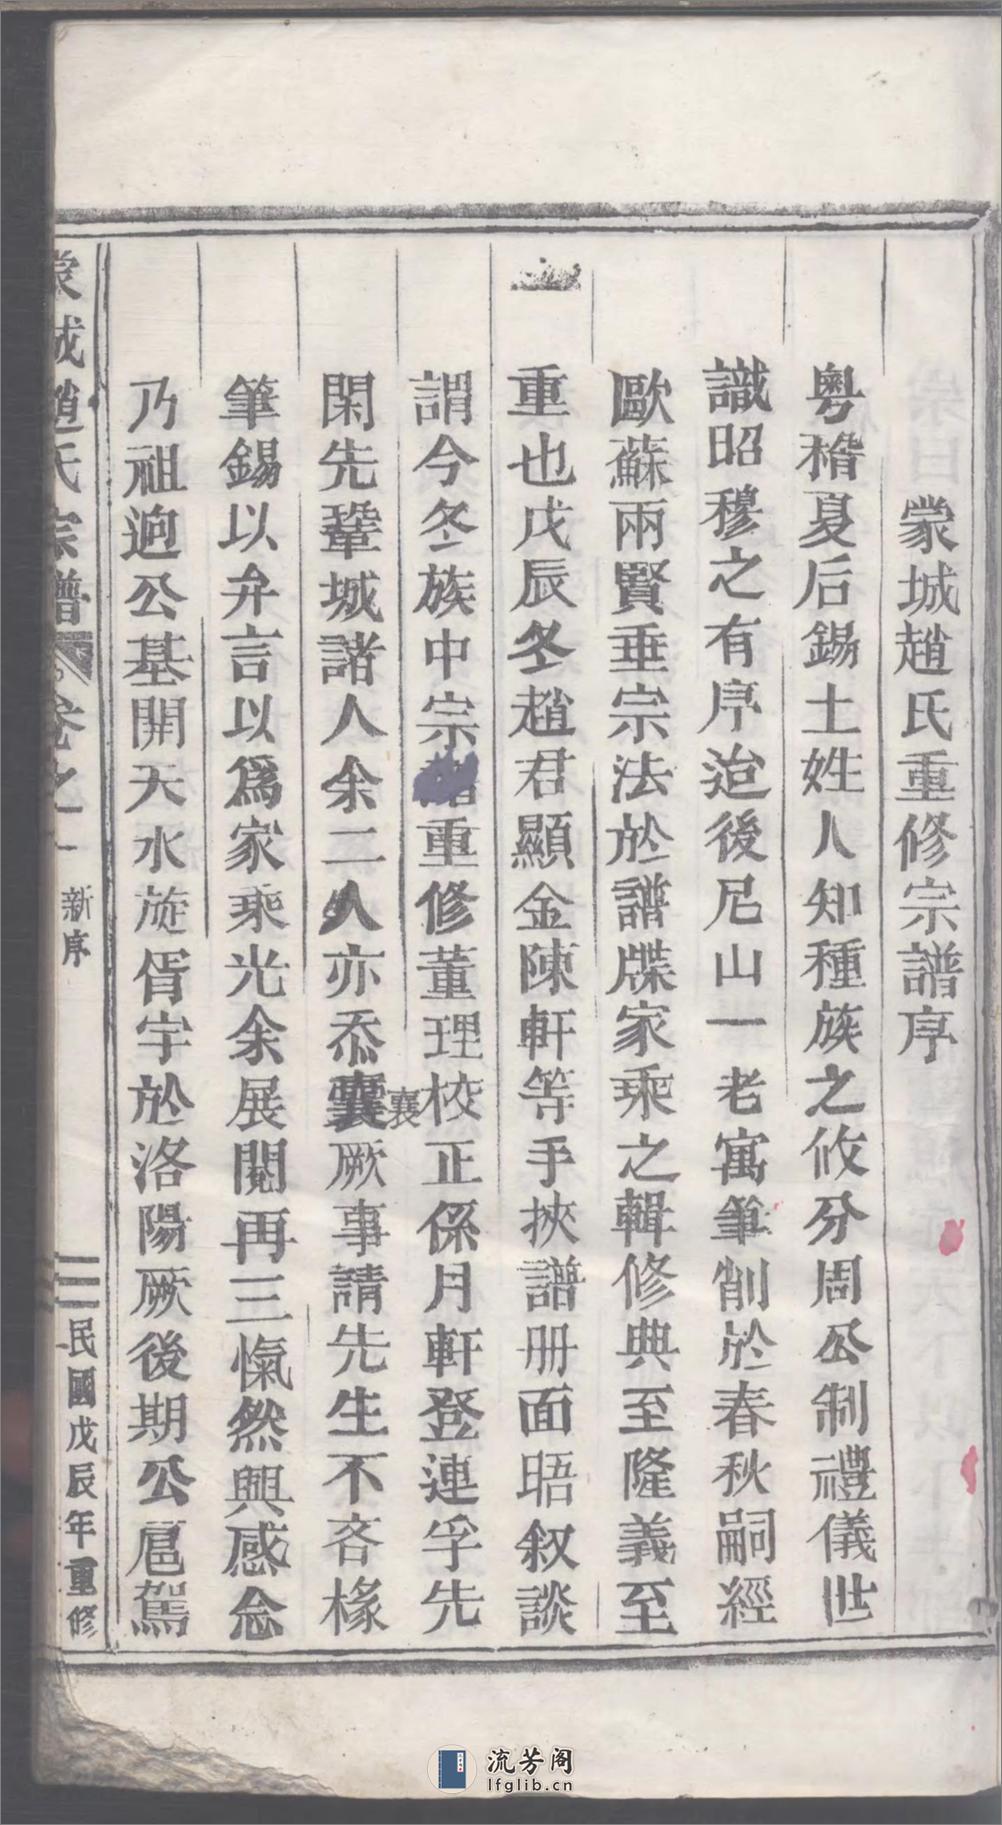 蒙城趙氏重修宗譜序
粵稽夏后錫土姓人知種族之攸分周公制禮儀世
識昭穆之有序迨後尼山一老寓筆削於春秋嗣經
歐蘇兩賢垂宗法於譜牒家乘之輯修典至隆義至
重也戊辰冬趙君顯金陳軒等手挾譜册面晤叙談
謂今冬族中宗譜重修董理校正係月軒登連孚先
閑先鞏城諸人余二人亦忝襄厥事請先生不吝椽
襄
筆錫以弁言以為家乘光余展閱再三愾然興感念
乃祖逈公基開天水旋胥宇於洛陽厥後期公扈駕
蒙城趙氏宗譜
卷之一
新序
民國戊辰年重修
流芳阁
lfglib.cn